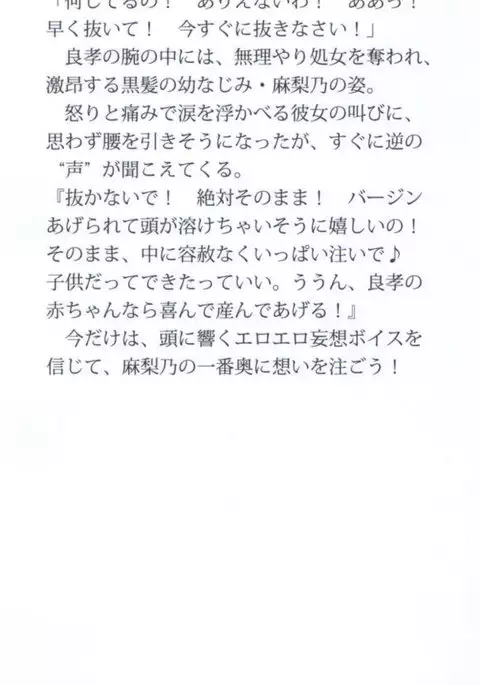 「何してるの！　ありえないわ！　ああっ！
早く抜いて！　今すぐに抜きなさい！」
良孝の腕の中には、無理やり処女を奪われ、
激昂する黒髪の幼なじみ・麻梨乃の姿。
怒りと痛みで涙を浮かべる彼女の叫びに、
思わず腰を引きそうになったが、すぐに逆の
“声”が聞こえてくる。
『抜かないで！　絶対そのまま！　バージン
あげられて頭が溶けちゃいそうに嬉しいの！
そのまま、中に容赦なくいっぱい注いで♪
子供だってできたっていい。ううん、良孝の
赤ちゃんなら喜んで産んであげる！』
今だけは、頭に響くエロエロ妄想ボイスを
信じて、麻梨乃の一番奥に想いを注ごう！